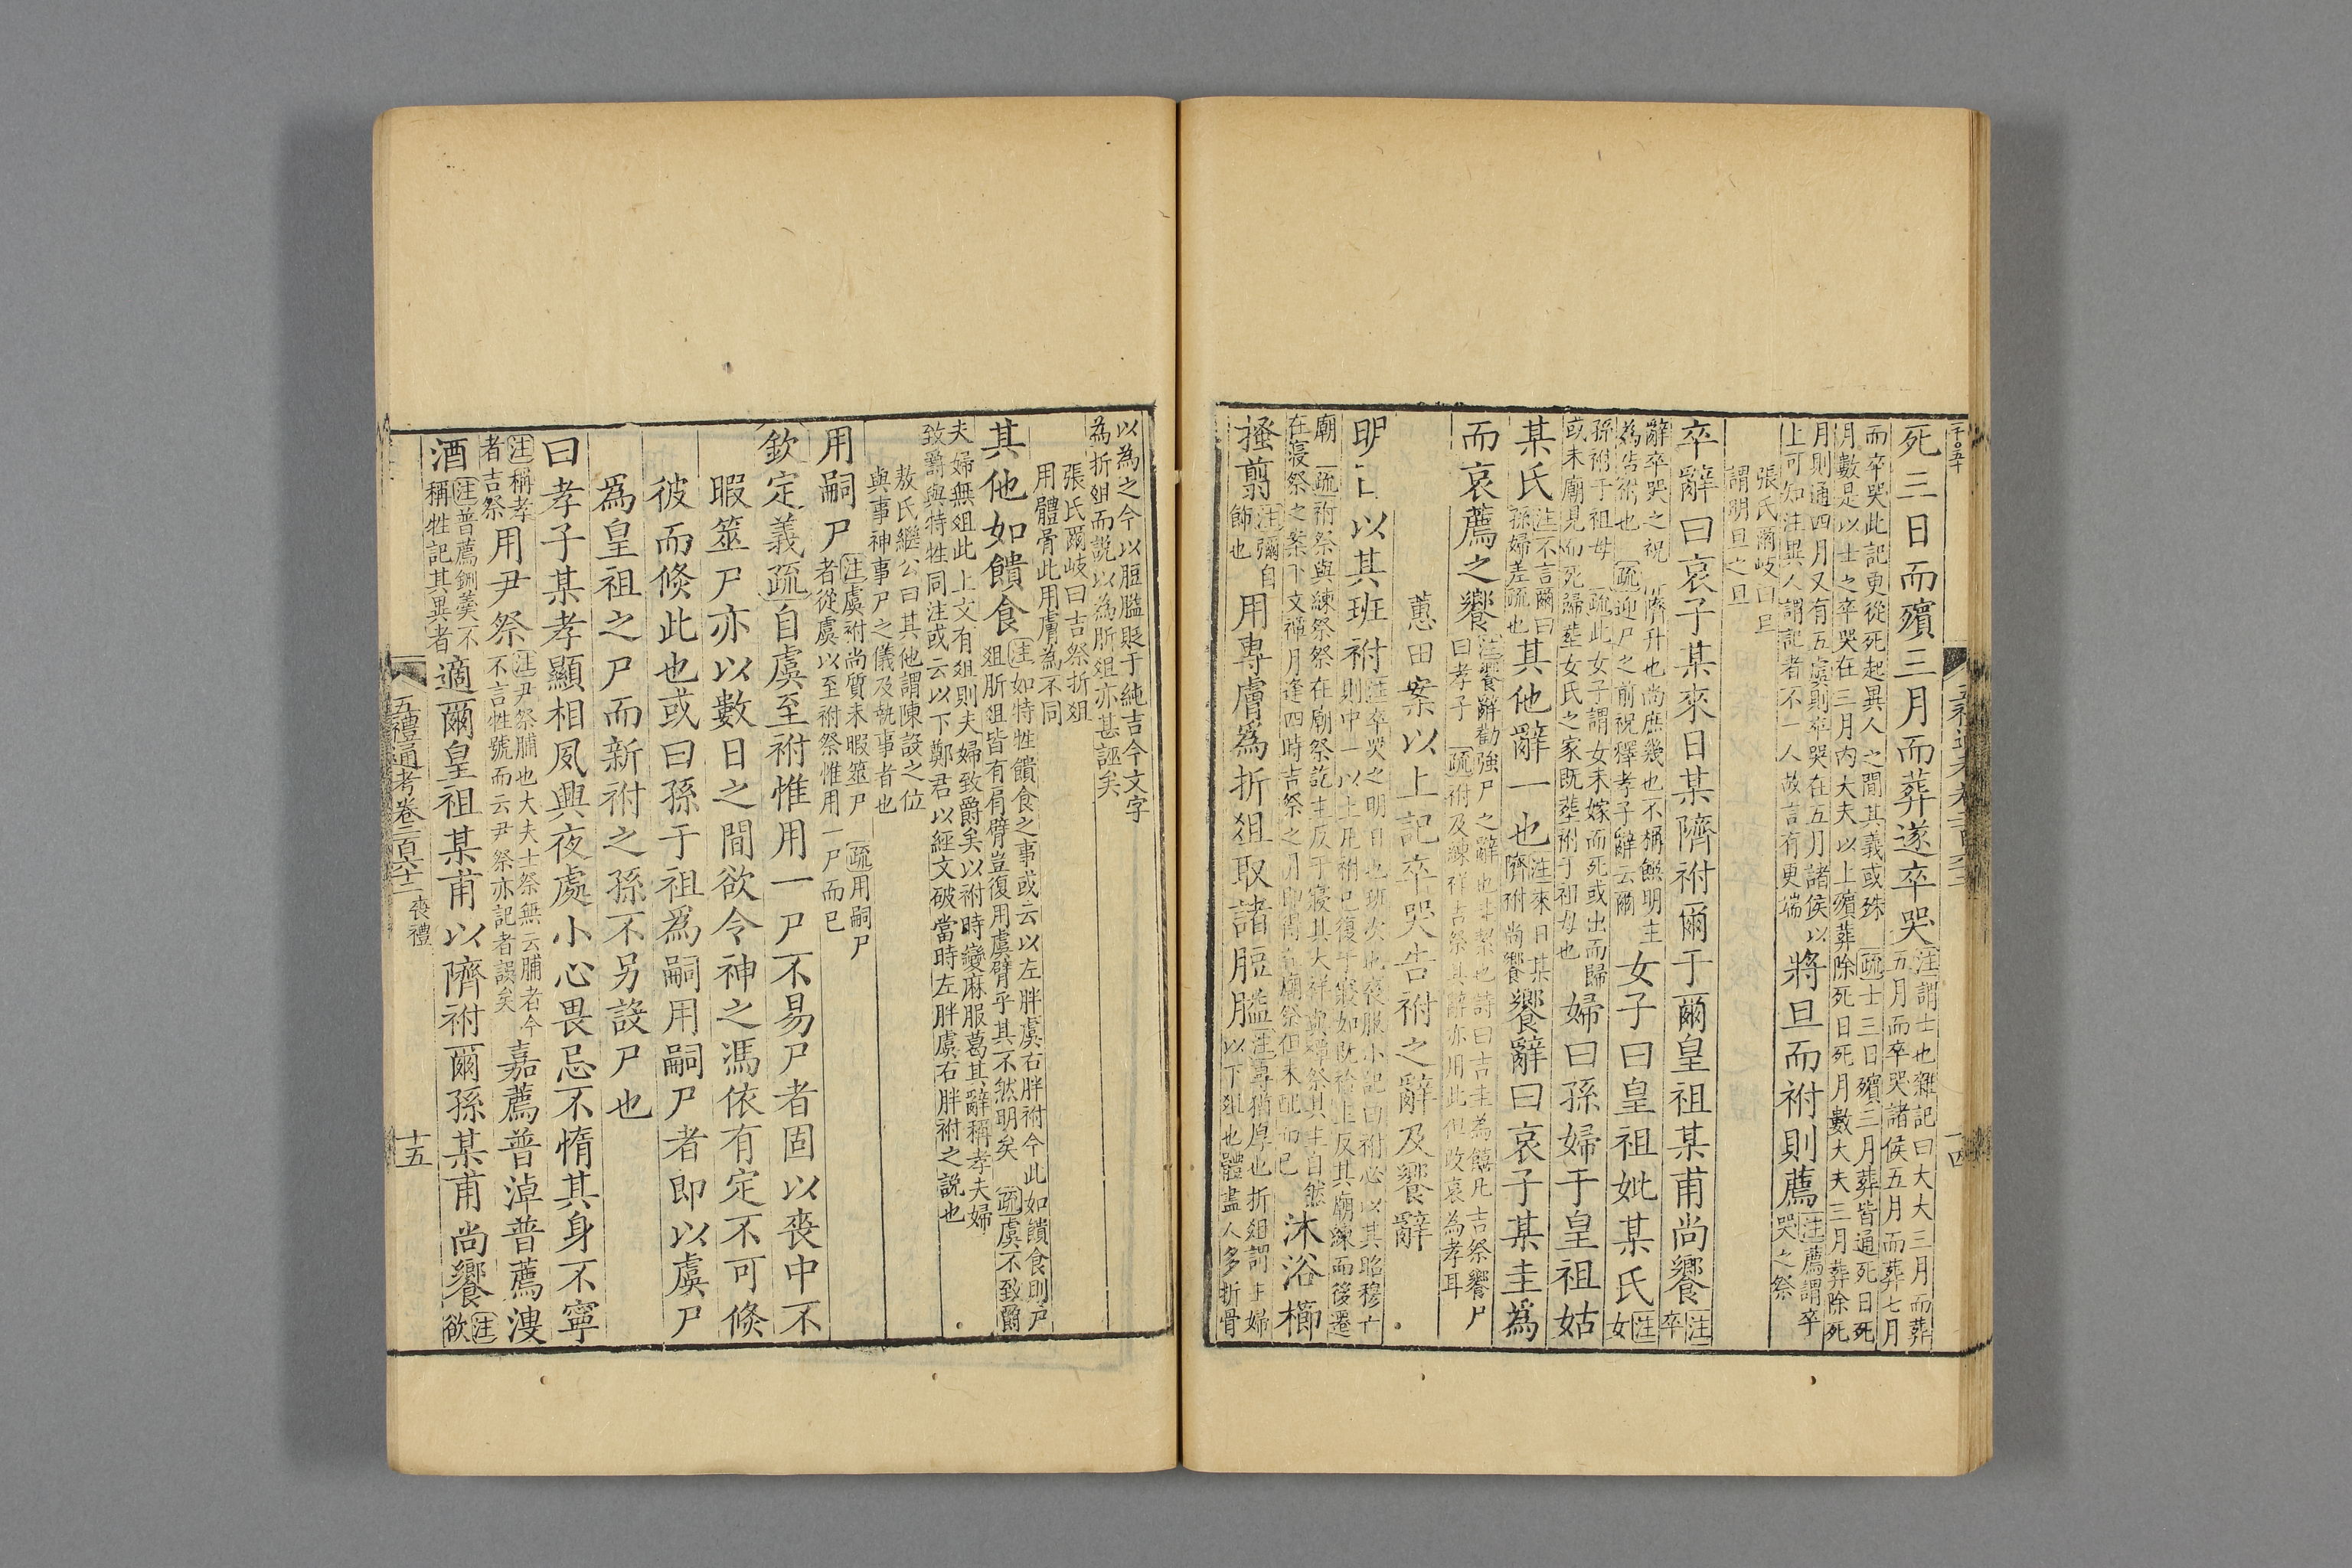 死三日而殯三月而葬遂卒哭注謂士也雜記曰大夫三月而葬
五月而卒哭諸侯五月而葬七月
而卒哭此記更從死起異人之間其義或殊疏士三日殯三月葬皆通死日死
月數是以士之卒哭在三月內大夫以上殯葬除死日死月數大夫三月葬除死
月則通四月又有五虞則卒哭在五月諸侯以
上可知注異人謂記者不一人故言有更端將旦而祔則薦注薦謂卒
哭之祭
張氏爾岐曰旦
謂明旦之旦
卒辭曰哀子某來日某隮祔爾于爾皇祖某甫尚饗注
卒
辭卒哭之祝 隮升也尚庶幾也不稱饌明主
為告祔也 疏迎尸之前祝釋孝子辭云爾女子曰皇祖妣某氏注
女
孫祔于祖母 疏此女子謂女未嫁而死或出而歸
或未廟見而死歸葬女氏之家既葬祔于祖母也婦曰孫婦于皇祖姑
某氏注不言爾曰
孫婦差疏也其他辭一也注來日某
隮祔尚饗饗辭曰哀子某圭爲
而哀薦之饗注饗辭勸強尸之辭也圭絜也詩曰吉圭為饎凡吉祭饗尸
曰孝子 疏祔及練祥吉祭其辭亦用此但改哀為孝耳
蕙田案以上記卒哭告祔之辭及饗辭
明日以其班祔注卒哭之明日也班次也喪服小記曰祔必以其昭穆亡
則中一以上凡祔已復于寢如既祫主反其廟練而後遷
廟 疏祔祭與練祭祭在廟祭訖主反于寢其大祥與禫祭其主自然
在寢祭之案下文禫月逢四時吉祭之月即得在廟祭但未配而已沐浴櫛
搔翦注彌自
飾也用專膚爲折俎取諸脰膉注專猶厚也折俎謂主婦
以下俎也體盡人多折骨
以為之今以脰膉貶于純吉今文字
為折俎而説以為肵俎亦甚誣矣
張氏爾岐曰吉祭折俎
用體骨此用膚為不同
其他如饋食注如特牲饋食之事或云以左胖虞右胖祔今此如饋食則尸
俎肵俎皆有肩臂豈復用虞臂乎其不然明矣 疏虞不致爵
夫婦無俎此上文有俎則夫婦致爵矣以祔時變麻服葛其辭稱孝夫婦
致爵與特牲同注或云以下鄭君以經文破當時左胖虞右胖祔之説也
敖氏繼公曰其他謂陳設之位
與事神事尸之儀及執事者也
用嗣尸注虞祔尚質未暇筮尸 疏用嗣尸
者從虞以至祔祭惟用一尸而已
欽定義疏自虞至祔惟用一尸不易尸者固以喪中不
暇筮尸亦以數日之間欲令神之馮依有定不可倏
彼而倏此也或曰孫于祖爲嗣用嗣尸者即以虞尸
爲皇祖之尸而新祔之孫不另設尸也
曰孝子某孝顯相夙興夜處小心畏忌不惰其身不寧
注稱孝
者吉祭用尹祭注尹祭脯也大夫士祭無云脯者今
不言牲號而云尹祭亦記者誤矣嘉薦普淖普薦溲
酒注普薦鉶羹不
稱牲記其異者適爾皇祖某甫以隮祔爾孫某甫尚饗注
欲
五禮通考卷二百六十二 喪禮 十五